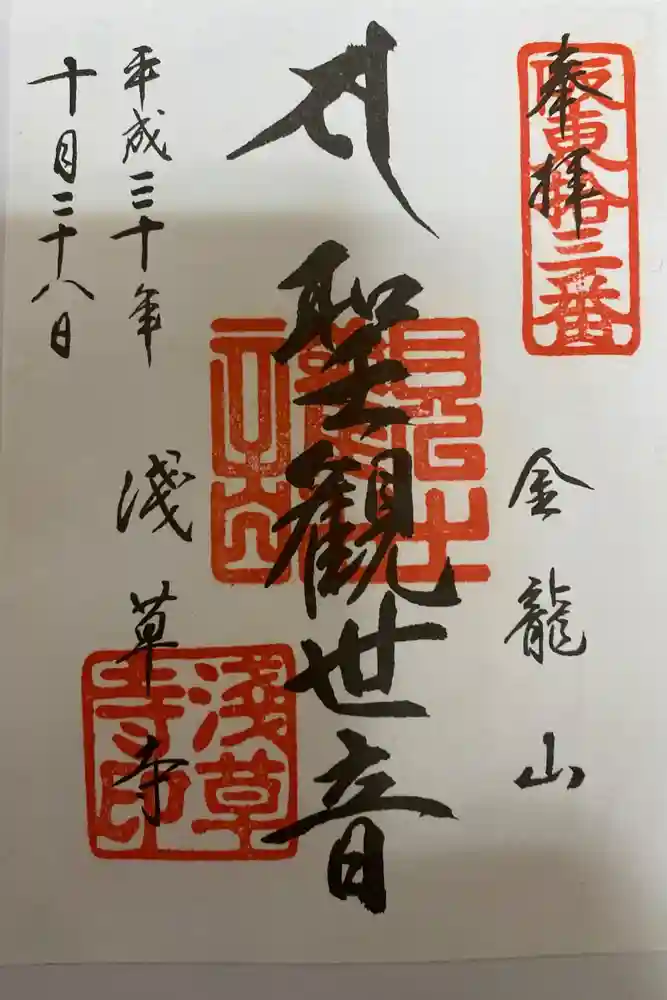 奉拝
坂東拾三番
金龍山
聖観世音
淺草寺
淺草寺印
平成三十年
十月二十八日